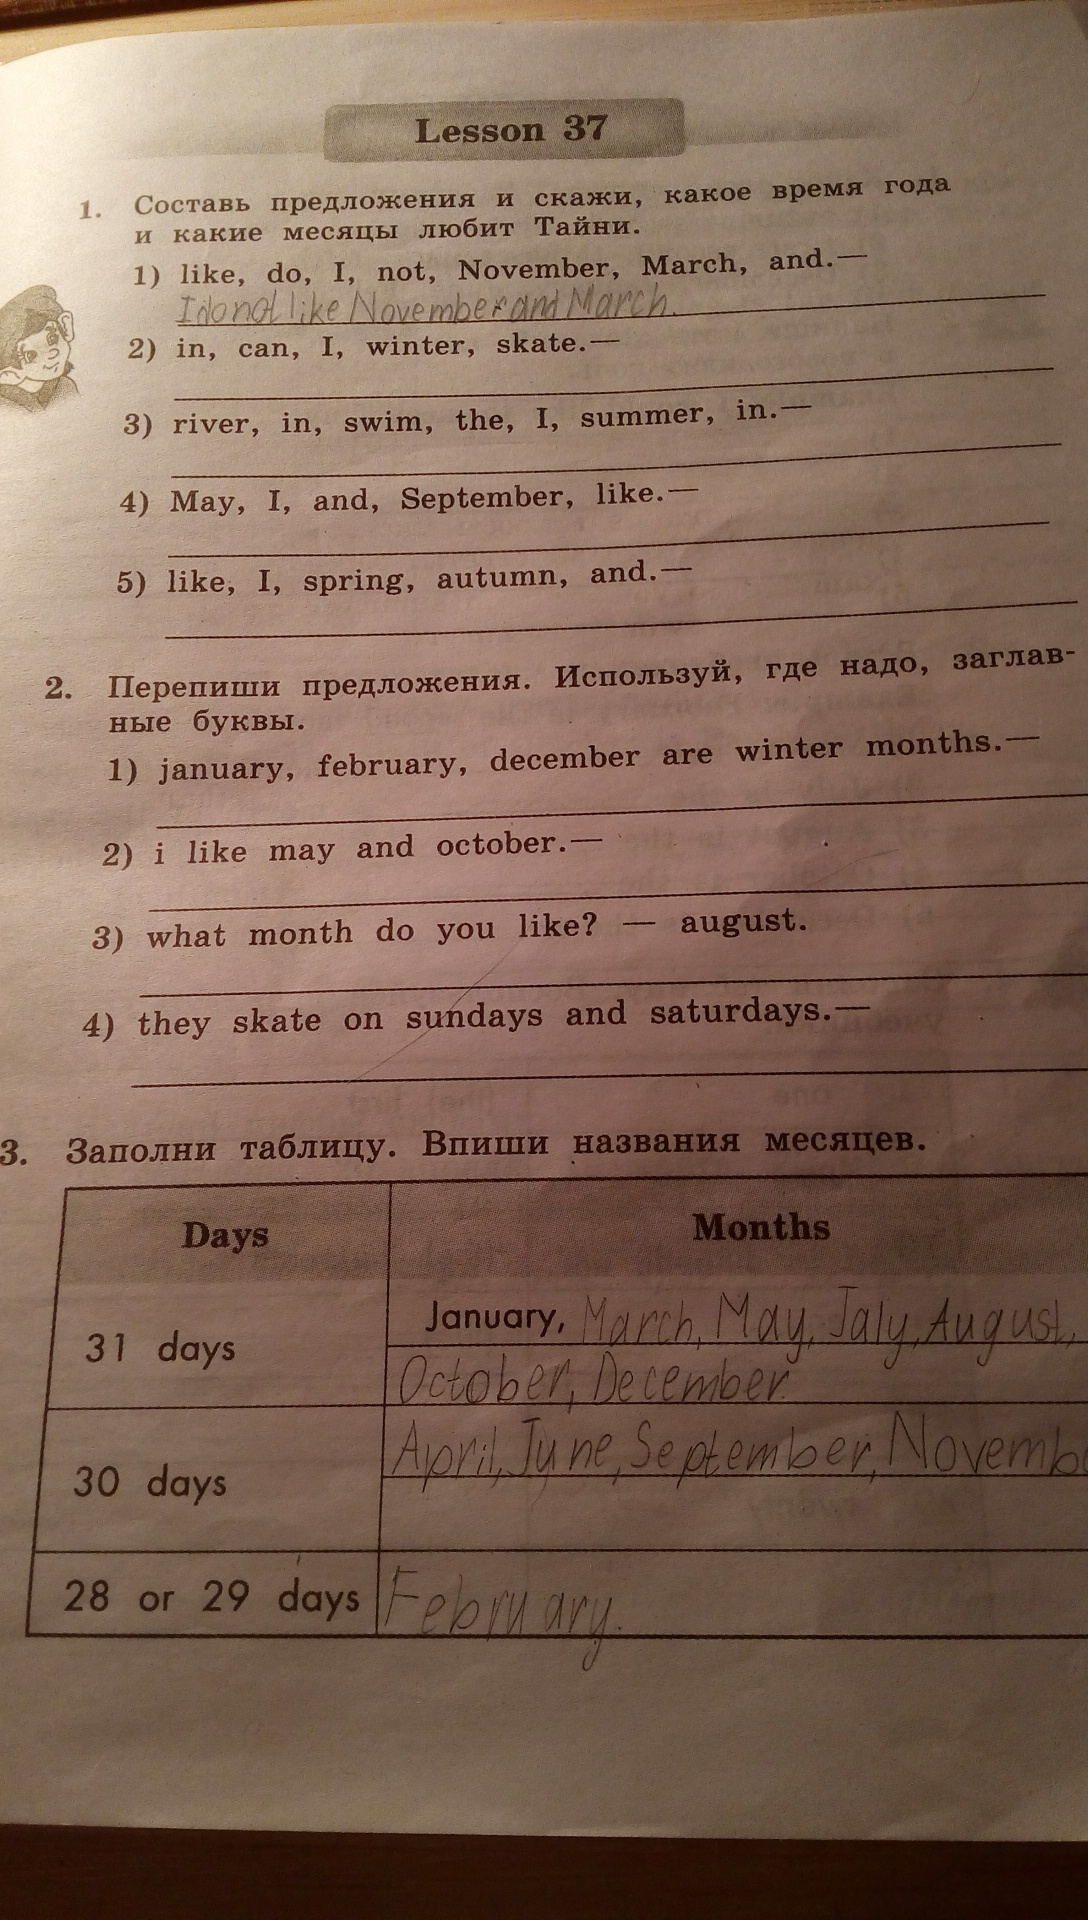 Lesson 37
1. Составь предложения и скажи, какое время года
и какие месяцы любит Тайни.
1) like, do, I, not, November, March, and.—
I do not like November and March.
2) in, can, I, winter, skate.—
3) river, in, swim, the, I, summer, in.—
4) May, I, and, September, like.—
5) like, I, spring, autumn, and.—
2. Перепиши предложения. Используй, где надо, заглав-
ные буквы.
1) january, february, december are winter months.—
2) i like may and october.—
3) what month do you like? — august.
4) they skate on sundays and saturdays.—
3. Заполни таблицу. Впиши названия месяцев.
Days Months
31 days January, March, May, Jaly, August,
October, December.
30 days April, June, September, Novembe
28 or 29 days February.